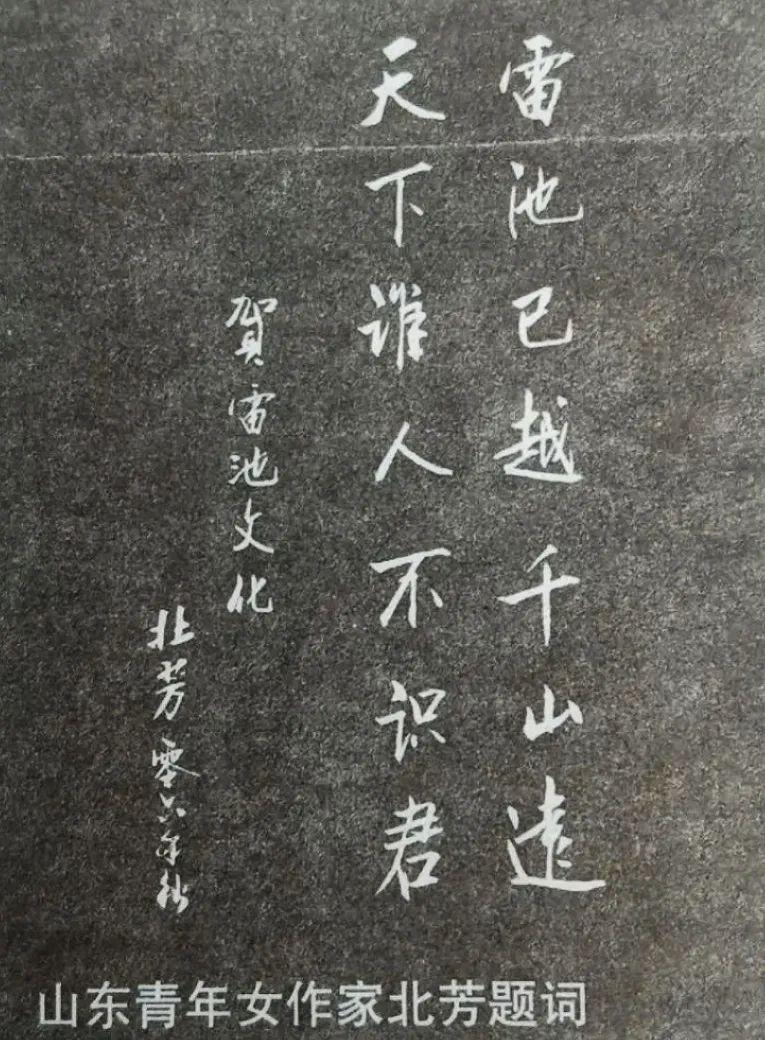 雷池已越千山遠
天下谁人不识君
賀雷池文化
北芳零六年秋
山东青年女作家北芳题词